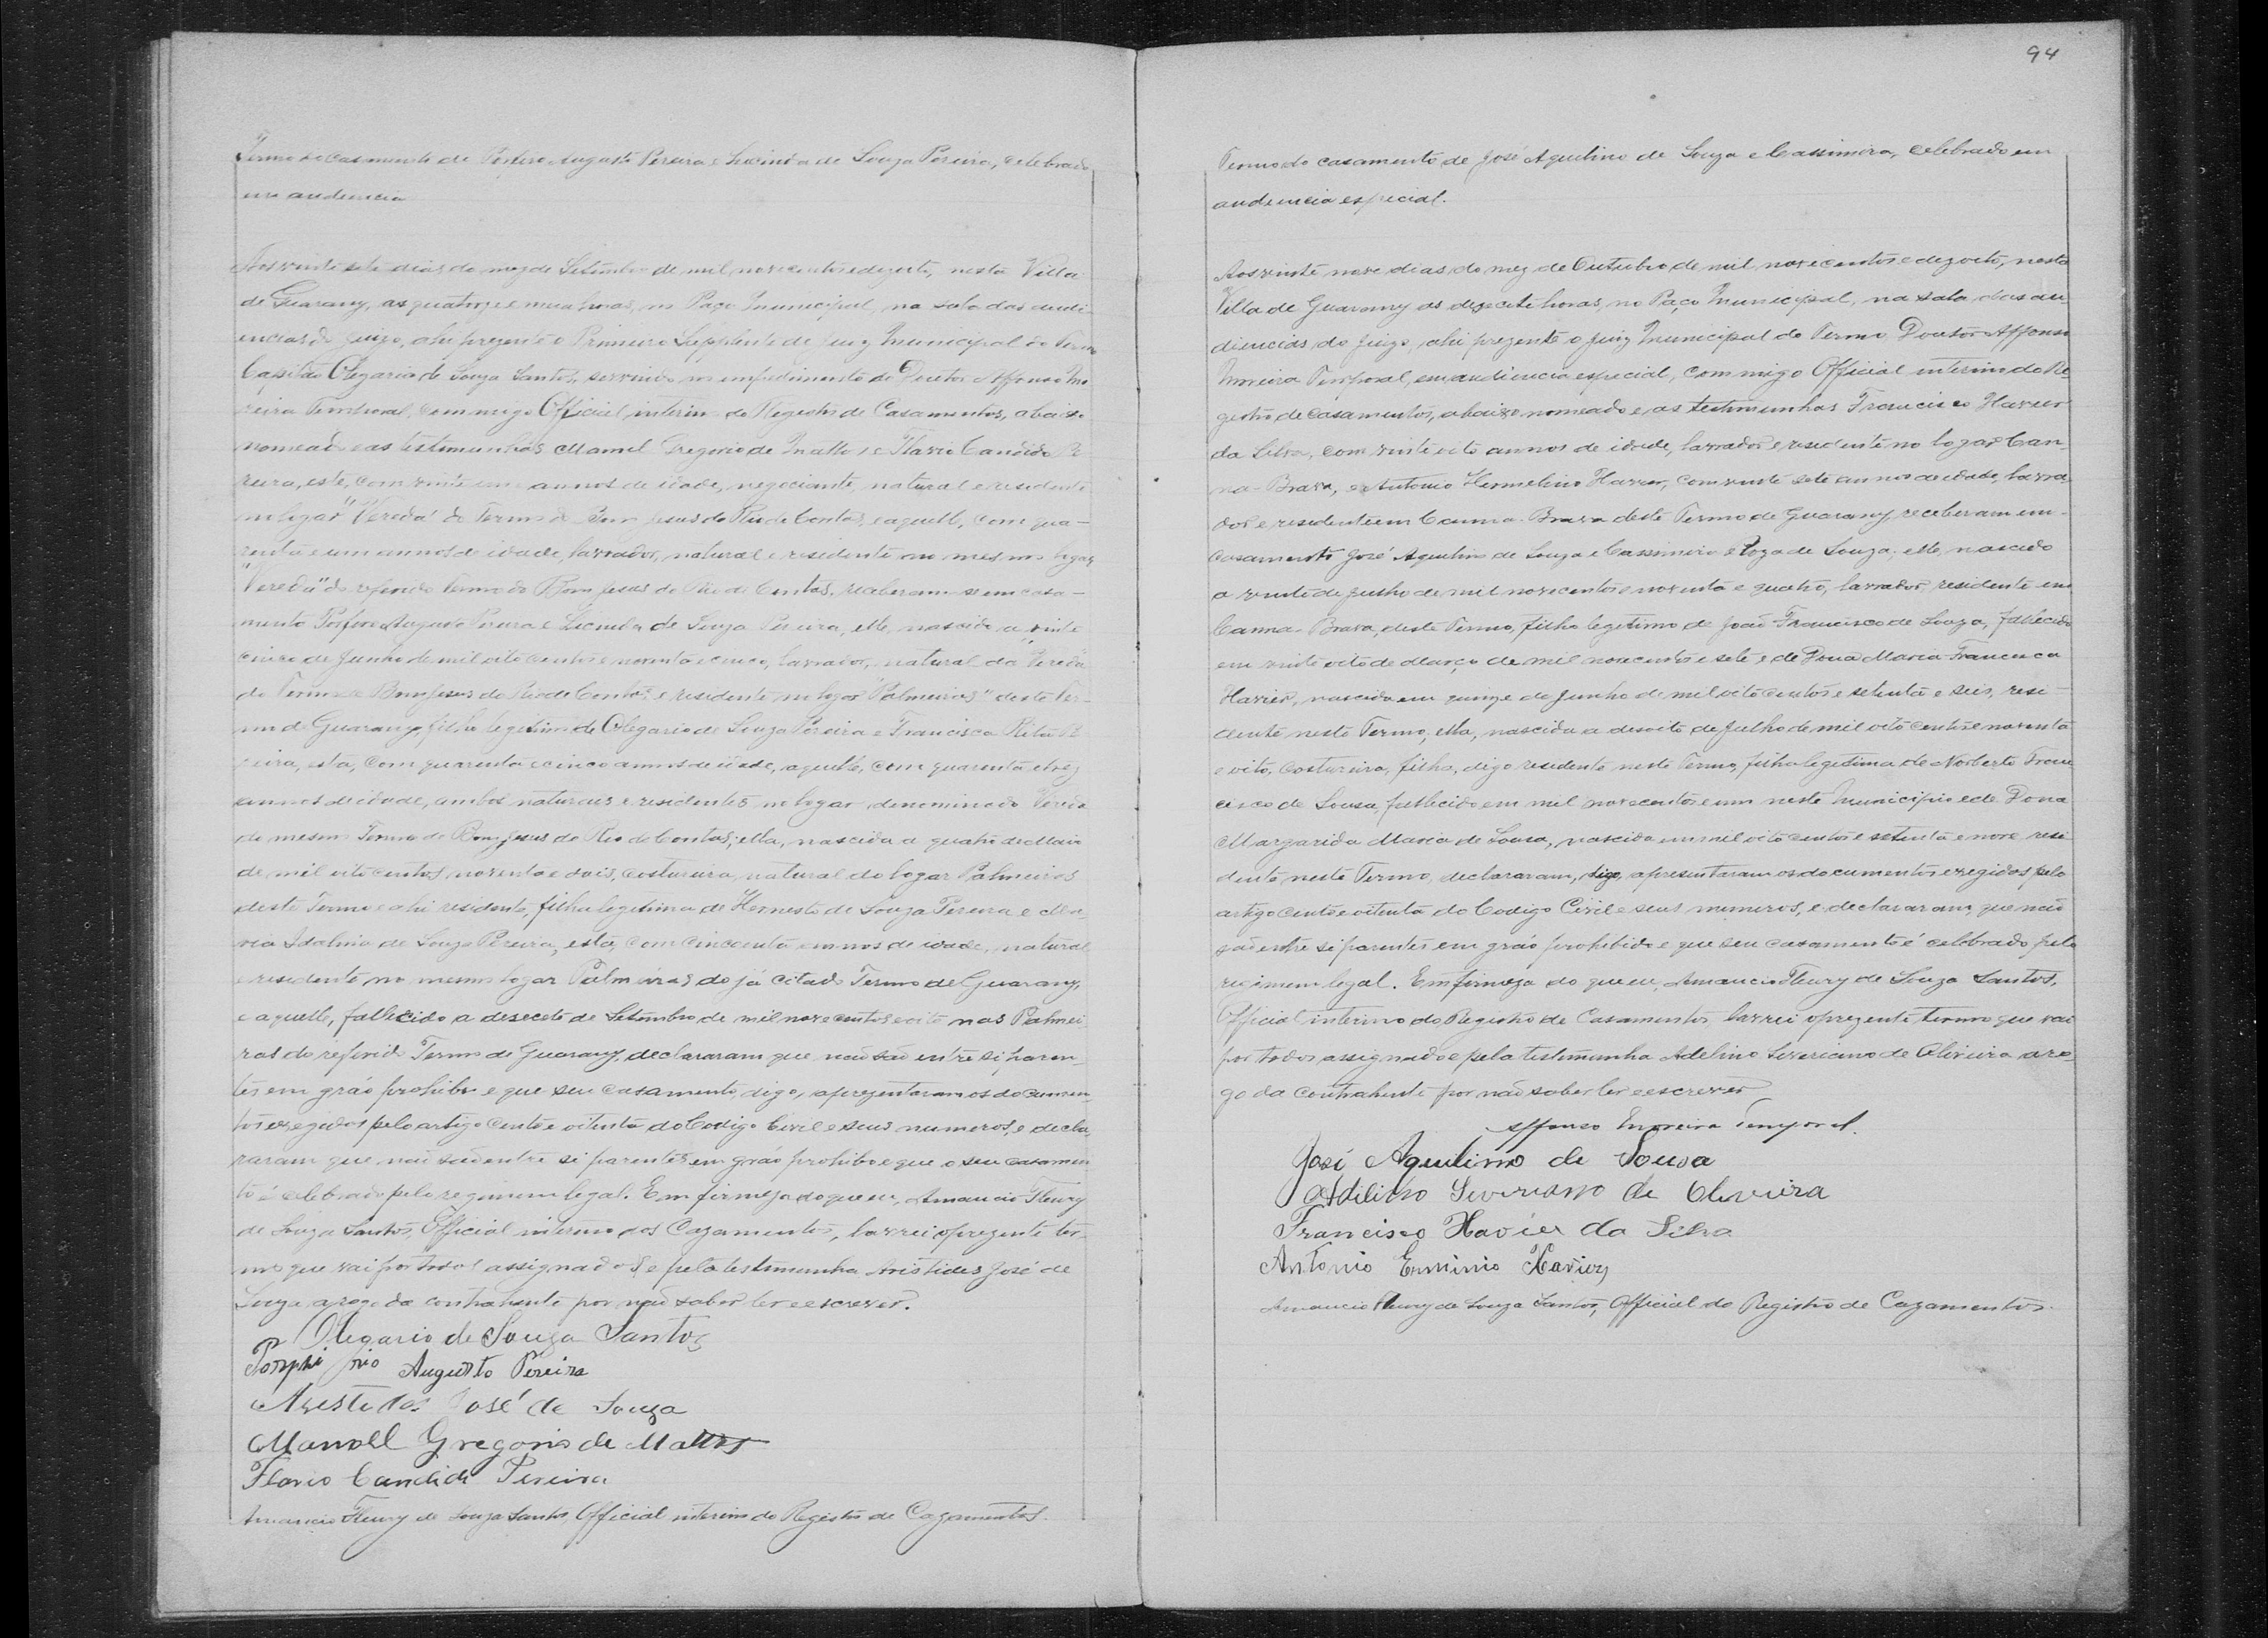 Termo do casamento de Porfiro Augusto Pereira e Lucinda de Souza Pereira, celebrado
em audiencia
Aos vinte sete dias do mez de Setembro de mil nove centos e dezoito, nesta Villa
de Guarany, as quatorze e meia horas, no Paço Municipal, na sala das audi-
encias do juizo, ahi prezente o Primeiro Supplente de Juiz Municipal do Termo
Capitão Olegario de Souza Santos, servindo no impedimento do Doutor Affonso Mo
reira Temporal, commigo Official interino do Registro de Casamentos, abaixo
nomeado e as testimunhas Manoel Gregorio de Mattos e Flavio Candido Pe
reira, este, com vinte um annos de idade, negociante natural e residente
no logar "Vereda" do Termo de Bom Jesus do Rio de Contas, e aquelle, com qua-
renta e um annos de idade, lavrador, natural e residente no mesmo logar
"Vereda" do referido Termo do Bom Jesus do Rio de Contas, receberam-se em casa-
mento Porfiro Augusto Pereira e Lucinda de Souza Pereira, elle, nascido a vinte
cinco de Junho de mil oito centos e noventa e cinco, lavrador, natural da "Vereda"
do Termo de Bom Jesus do Rio de Contas e residente no logar "Palmeiras" deste Ter-
mo de Guarany, filho legitimo de Olegario de Souza Pereira e Francisca Rita Pe
reira, esta, com quarenta e cinco annos de idade, aquelle, com quarenta e trez
annos de idade, ambos naturaes e residentes no logar denominado Vereda
do mesmo Termo de Bom Jesus do Rio de Contas; ella, nascida a quatro de Maio
de mil oito centos noventa e dois, costureira, natural do logar Palmeiras
deste Termo e ahi residente, filha legitima de Hernesto de Souza Pereira e Ma
ria Idalina de Souza Pereira, esta, com cincoenta annos de idade, natural
e residente no mesmo logar Palmeiras do já citado Termo de Guarany,
e aquelle, fallecido a desecete de Setembro de mil nove centos e oito nas Palmei
ras do referido Termo de Guarany, declararam que não são entre si paren-
tes em gráo prohibo e que seu casamento, digo, aprezentaram os documen-
tos exegidos pelo artigo cento e oitenta do Codigo Civil e seus numeros, e decla-
raram que não são entre si parentes em gráo prohibo e que o seu casamen-
to é celebrado pelo regimem legal. Em firmeza do que eu, Amancio Fleury
de Souza Santos, Official interino dos Cazamentos, lavrei o prezente ter-
mo que vai por todos assignados e pela testimunha Aristides José de
Souza a rogo da contrahente por não saber ler e escrever.
Olegario de Souza Santos
Porphirio Augusto Pereira
Aristides José de Souza
Manoel Gregorio de Mattos
Flavio Candido Pereira
Amancio Fleury de Souza Santos, Official interino do Registro de Cazamentos.
94
Termo do casamento de José Aquilino de Souza e Cassimira, celebrado em
audiencia especial.
Aos vinte nove dias do mez de Outubro de mil nove centos e dezoito, nesta
Villa de Guarany as dezecete horas, no Paço Municipal, na sala das au-
diencias do juizo, ahi prezente o Juiz Municipal do Termo Doutor Affonso
Moreira Temporal, em audiencia especial, commigo Official interino do Re-
gistro de casamentos, abaixo nomeado e as testimunhas Francisco Xavier
da Silva, com vinte oito annos de idade, lavrador e residente no logar Can-
na-Brava, e Antonio Hermelino Xavier, com vinte sete annos de idade, lavra-
dor e residente em Canna-Brava deste Termo de Guarany, receberam em-
casamento José Aquilino de Souza e Cassimira de Souza, elle, nascido
a vinte de Junho de mil nove centos e noventa e quatro, lavrador, residente em
Canna-Brava, deste Termo, filho legitimo de João Francisco de Souza, fallecido
em vinte oito de Março de mil nove centos e sete e de Dona Maria Francisca
Xavier, nascida em quinze de Junho de mil oito centos e setenta e seis, resi-
dente neste Termo; ella, nascida a desoito de Julho de mil oito centos e noventa
e oito, costureira, filha, digo residente neste Termo, filha legitima de Norberto Fran
cisco de Sousa, fallecido em mil nove centos e um neste Municipio e de Dona
Margarida Maria de Sousa, nascida em mil oito centos e setenta e nove resi
dente neste Termo, declararam, digo, apresentaram os documentos exegidos pelo
artigo cento e oitenta do Codigo Civil e seus numeros, e declararam, que não
são entre si parentes em gráo prohibido e que seu casamento é celebrado pelo
regimem legal. Em firmeza do que eu, Amancio Fleury de Souza Santos,
Official interino do Registro de Casamentos, lavrei o prezente termo que vai
por todos assignado e pela testimunha Adelino Severiano de Oliveira a ro-
go da contrahente por não saber ler e escrever
Affonso Moreira Temporal.
José Aquilino de Sousa
Adilino Severiano de Oliveira
Francisco Xavier da Silva
Antonio Erminio Xavier
Amancio Fleury de Souza Santos, Official do Registro de Cazamentos.